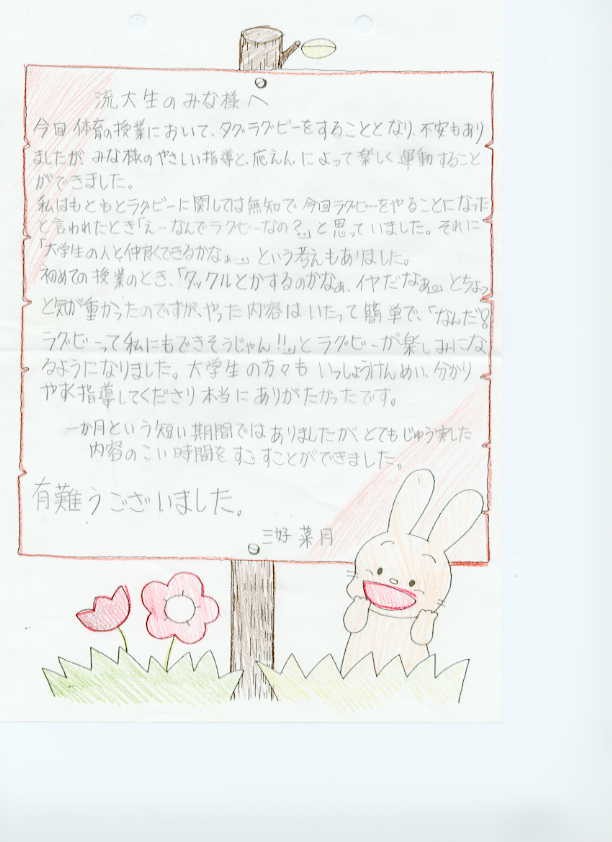 流大生のみな様へ
今回 体育の授業において、タグ・ラグビーをすることとなり 不安もあり
ましたが みな様のやさしい指導と、応えん によって 楽しく 運動すること
ができました。
私はもともとラグビーに関しては無知で 今回ラグビーをやることになった
と言われたとき「えーなんでラグビーなの?」と思っていました。それに
「大学生の人と仲良くできるかな。」という考えもありました。
初めての授業のとき、「タックルとかするのかなぁ、イヤだなぁ」とちょっ
と気が重かったのですが、やった内容はいたって簡単で、「なんだ!
ラグビーって私にもできそうじゃん!!」とラグビーが楽しみにな
るようになりました。大学生の方々も いっしょうけんめい 分かり
やすく指導してくださり 本当に ありがたかったです。
一か月という短い期間では ありましたが、とてもじゅう実した
内容のこい時間をすごすことができました。
有難うございました。
三好 菜月